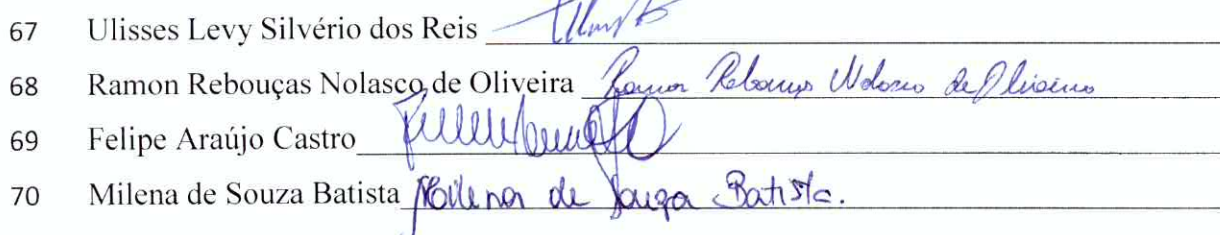 67 Ulisses Levy Silvério dos Reis
68 Ramon Rebouças Nolasco de Oliveira Ramon Rebouças Nolasco de Oliveira
69 Felipe Araújo Castro
70 Milena de Souza Batista Milena de Souza Batista.